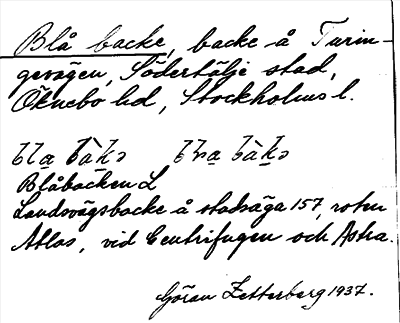 Blå backe, backe å Turin-
gevägen, Södertälje stad,
Öknebo hd, Stockholms l.
bla bàkə bra bàkə
Blåbacken L
Landsvägsbacke å stadsäga 157, roten
Atlas, vid Centrifugen och Astra.
Göran Zetterberg 1937.